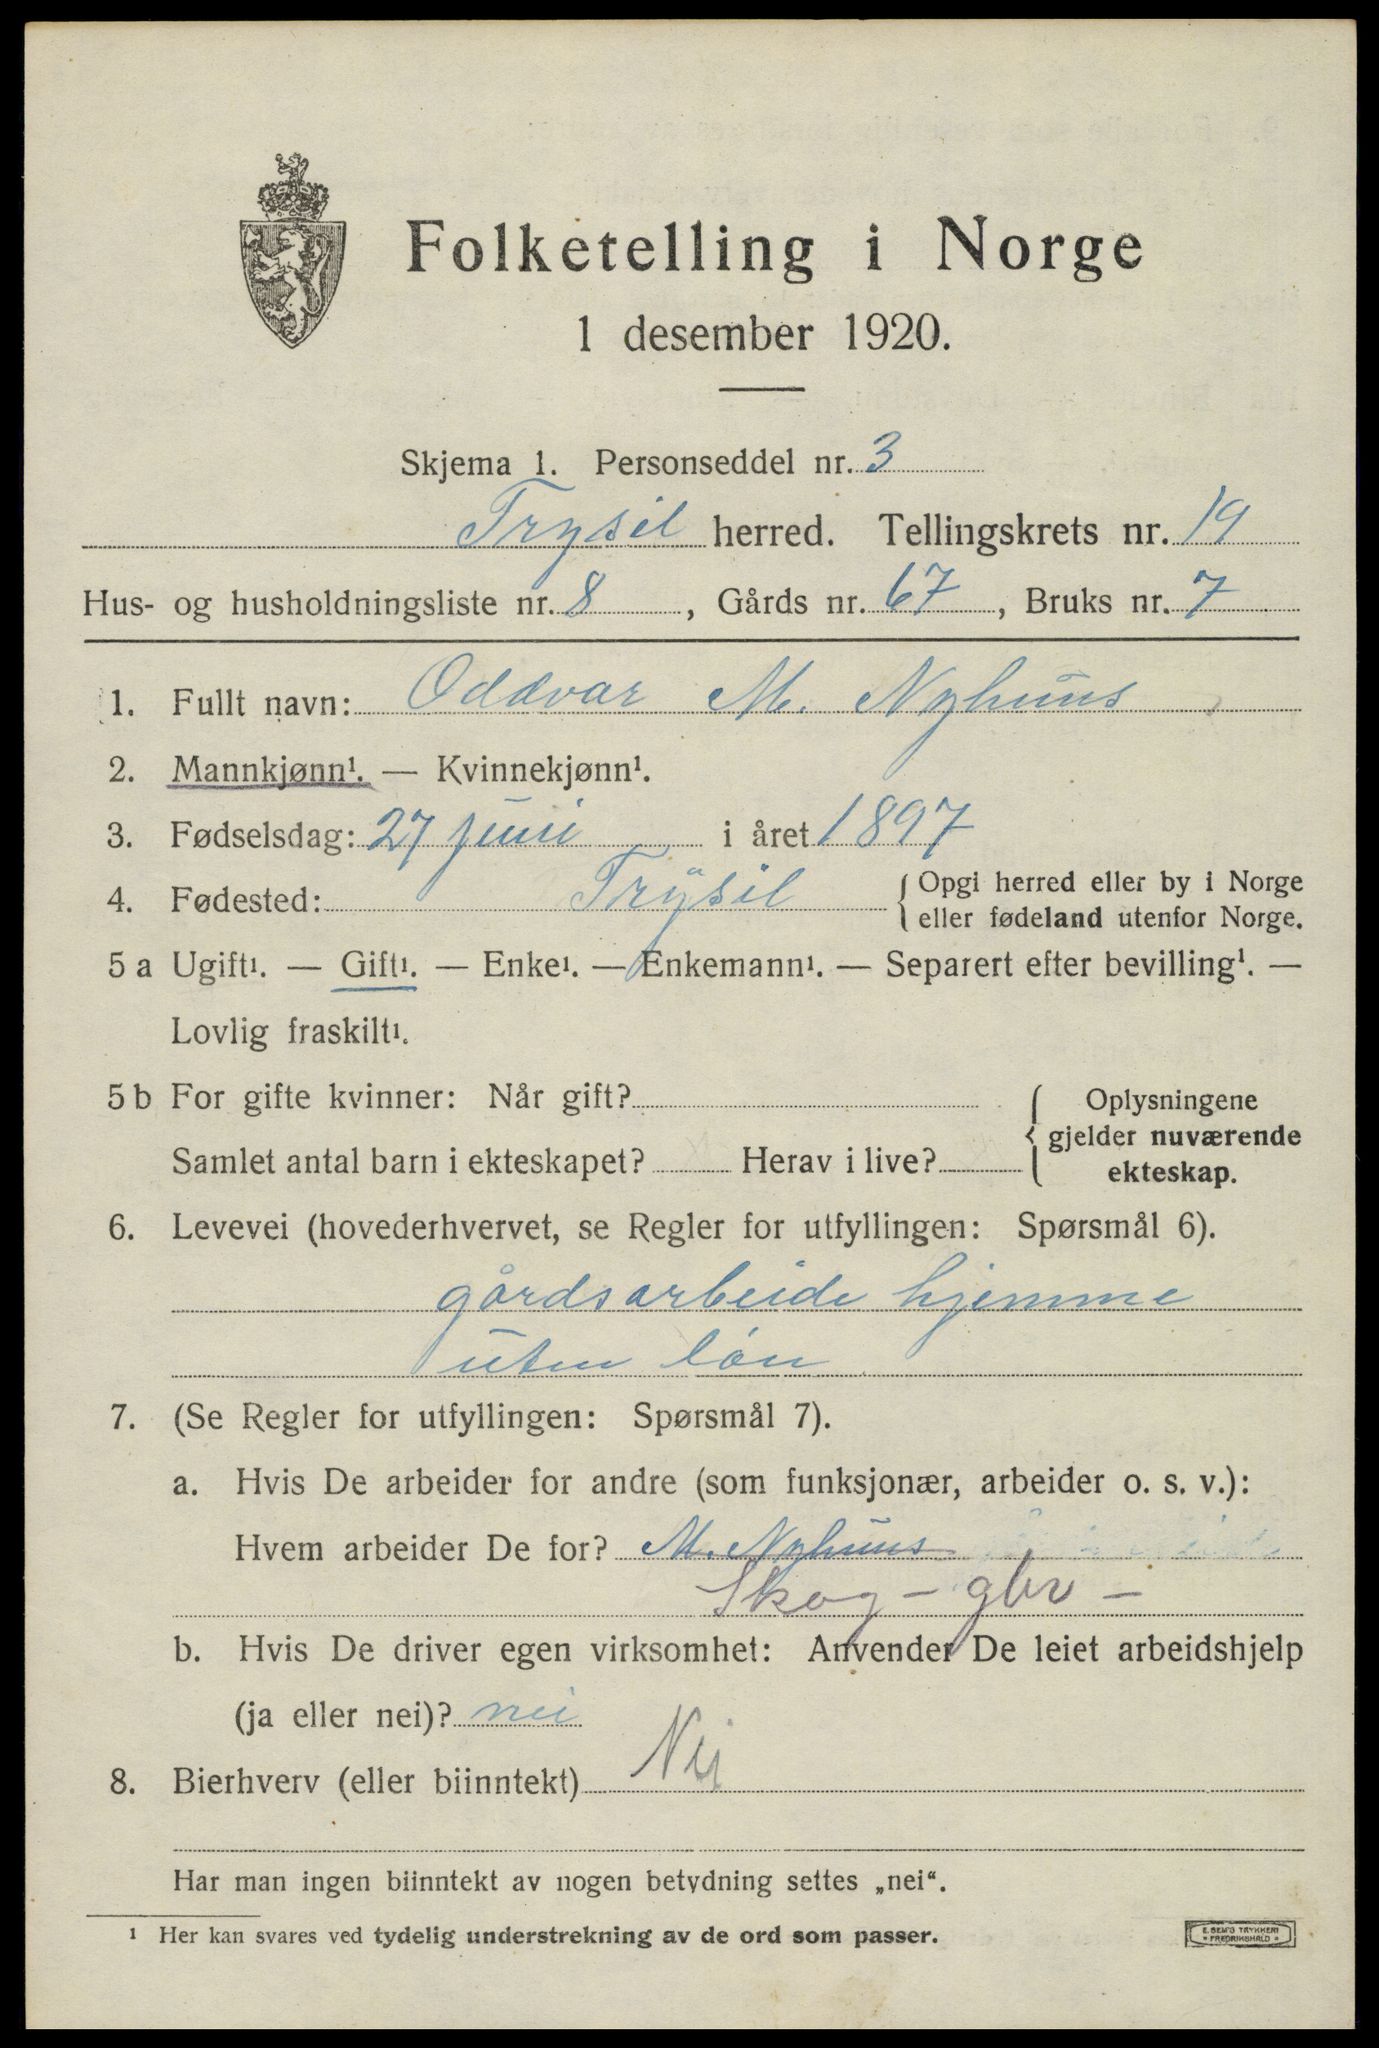 Folketelling i Norge
1 desember 1920.
Skjema 1. Personseddel nr. 3
Trysil herred. Tellingskrets nr. 19
Hus- og husholdningsliste nr. 8, Gårds nr. 67, Bruks nr. 7
1. Fullt navn: Oddvar M. Nyhuus
2. Mannkjønn¹. — Kvinnekjønn¹.
3. Fødselsdag: 27 juni i året 1897
4. Fødested: Trysil { Opgi herred eller by i Norge
eller fødeland utenfor Norge.
5 a Ugift¹. — Gift¹. — Enke¹. — Enkemann¹. — Separert efter bevilling¹. —
Lovlig fraskilt¹.
5 b For gifte kvinner: Når gift? { Oplysningene
gjelder nuværende
Samlet antal barn i ekteskapet? Herav i live?
ekteskap.
6. Levevei (hovederhvervet, se Regler for utfyllingen: Spørsmål 6).
gårdsarbeide hjemme
uten løn
7. (Se Regler for utfyllingen: Spørsmål 7).
a. Hvis De arbeider for andre (som funksjonær, arbeider o. s. v.):
Hvem arbeider De for? M. Nyhuus
Skog - gbr -
b. Hvis De driver egen virksomhet: Anvender De leiet arbeidshjelp
(ja eller nei)? nei
8. Bierhverv (eller biinntekt) Nei
Har man ingen biinntekt av nogen betydning settes „nei“.
¹ Her kan svares ved tydelig understrekning av de ord som passer.
E. SEM'S TRYKKERI
* FREDRIKSHALD *